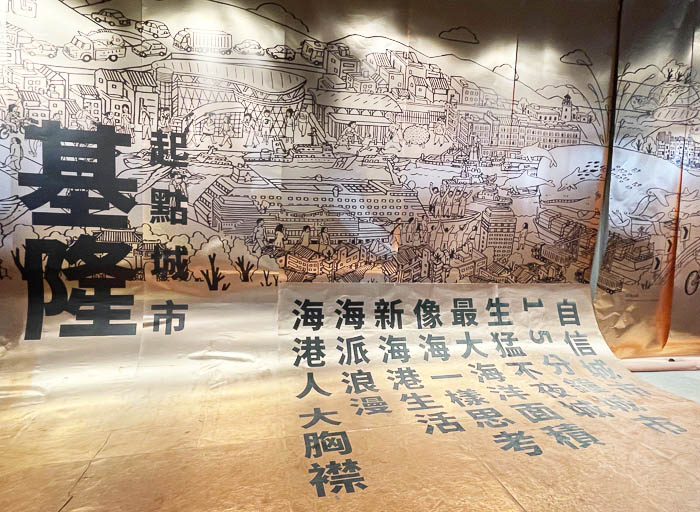 基隆
起點城市
自信城市
15分鐘城市
生猛不夜城
最大海洋面積
像海一樣思考
新海港生活
海派浪漫
海港人大胸襟